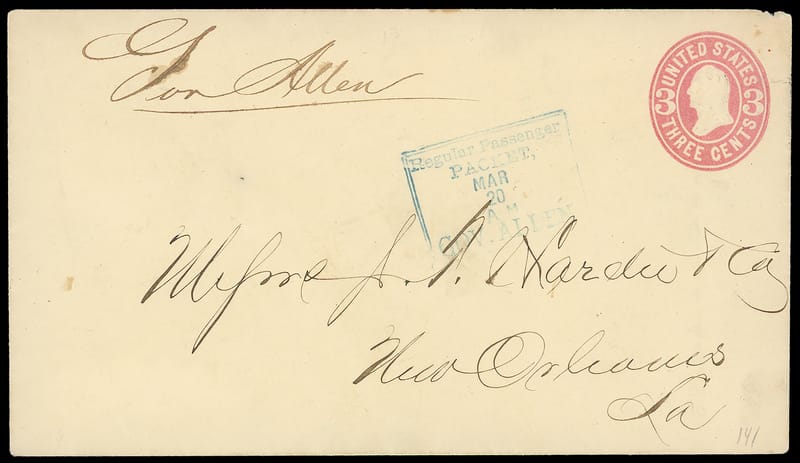 Gov Allen
UNITED STATES
3 3
THREE CENTS
Regular Passenger
PACKET,
MAR
20
A M
GOV. ALLEN
Messrs J. S. Hardie & Co
New Orleans
La
141